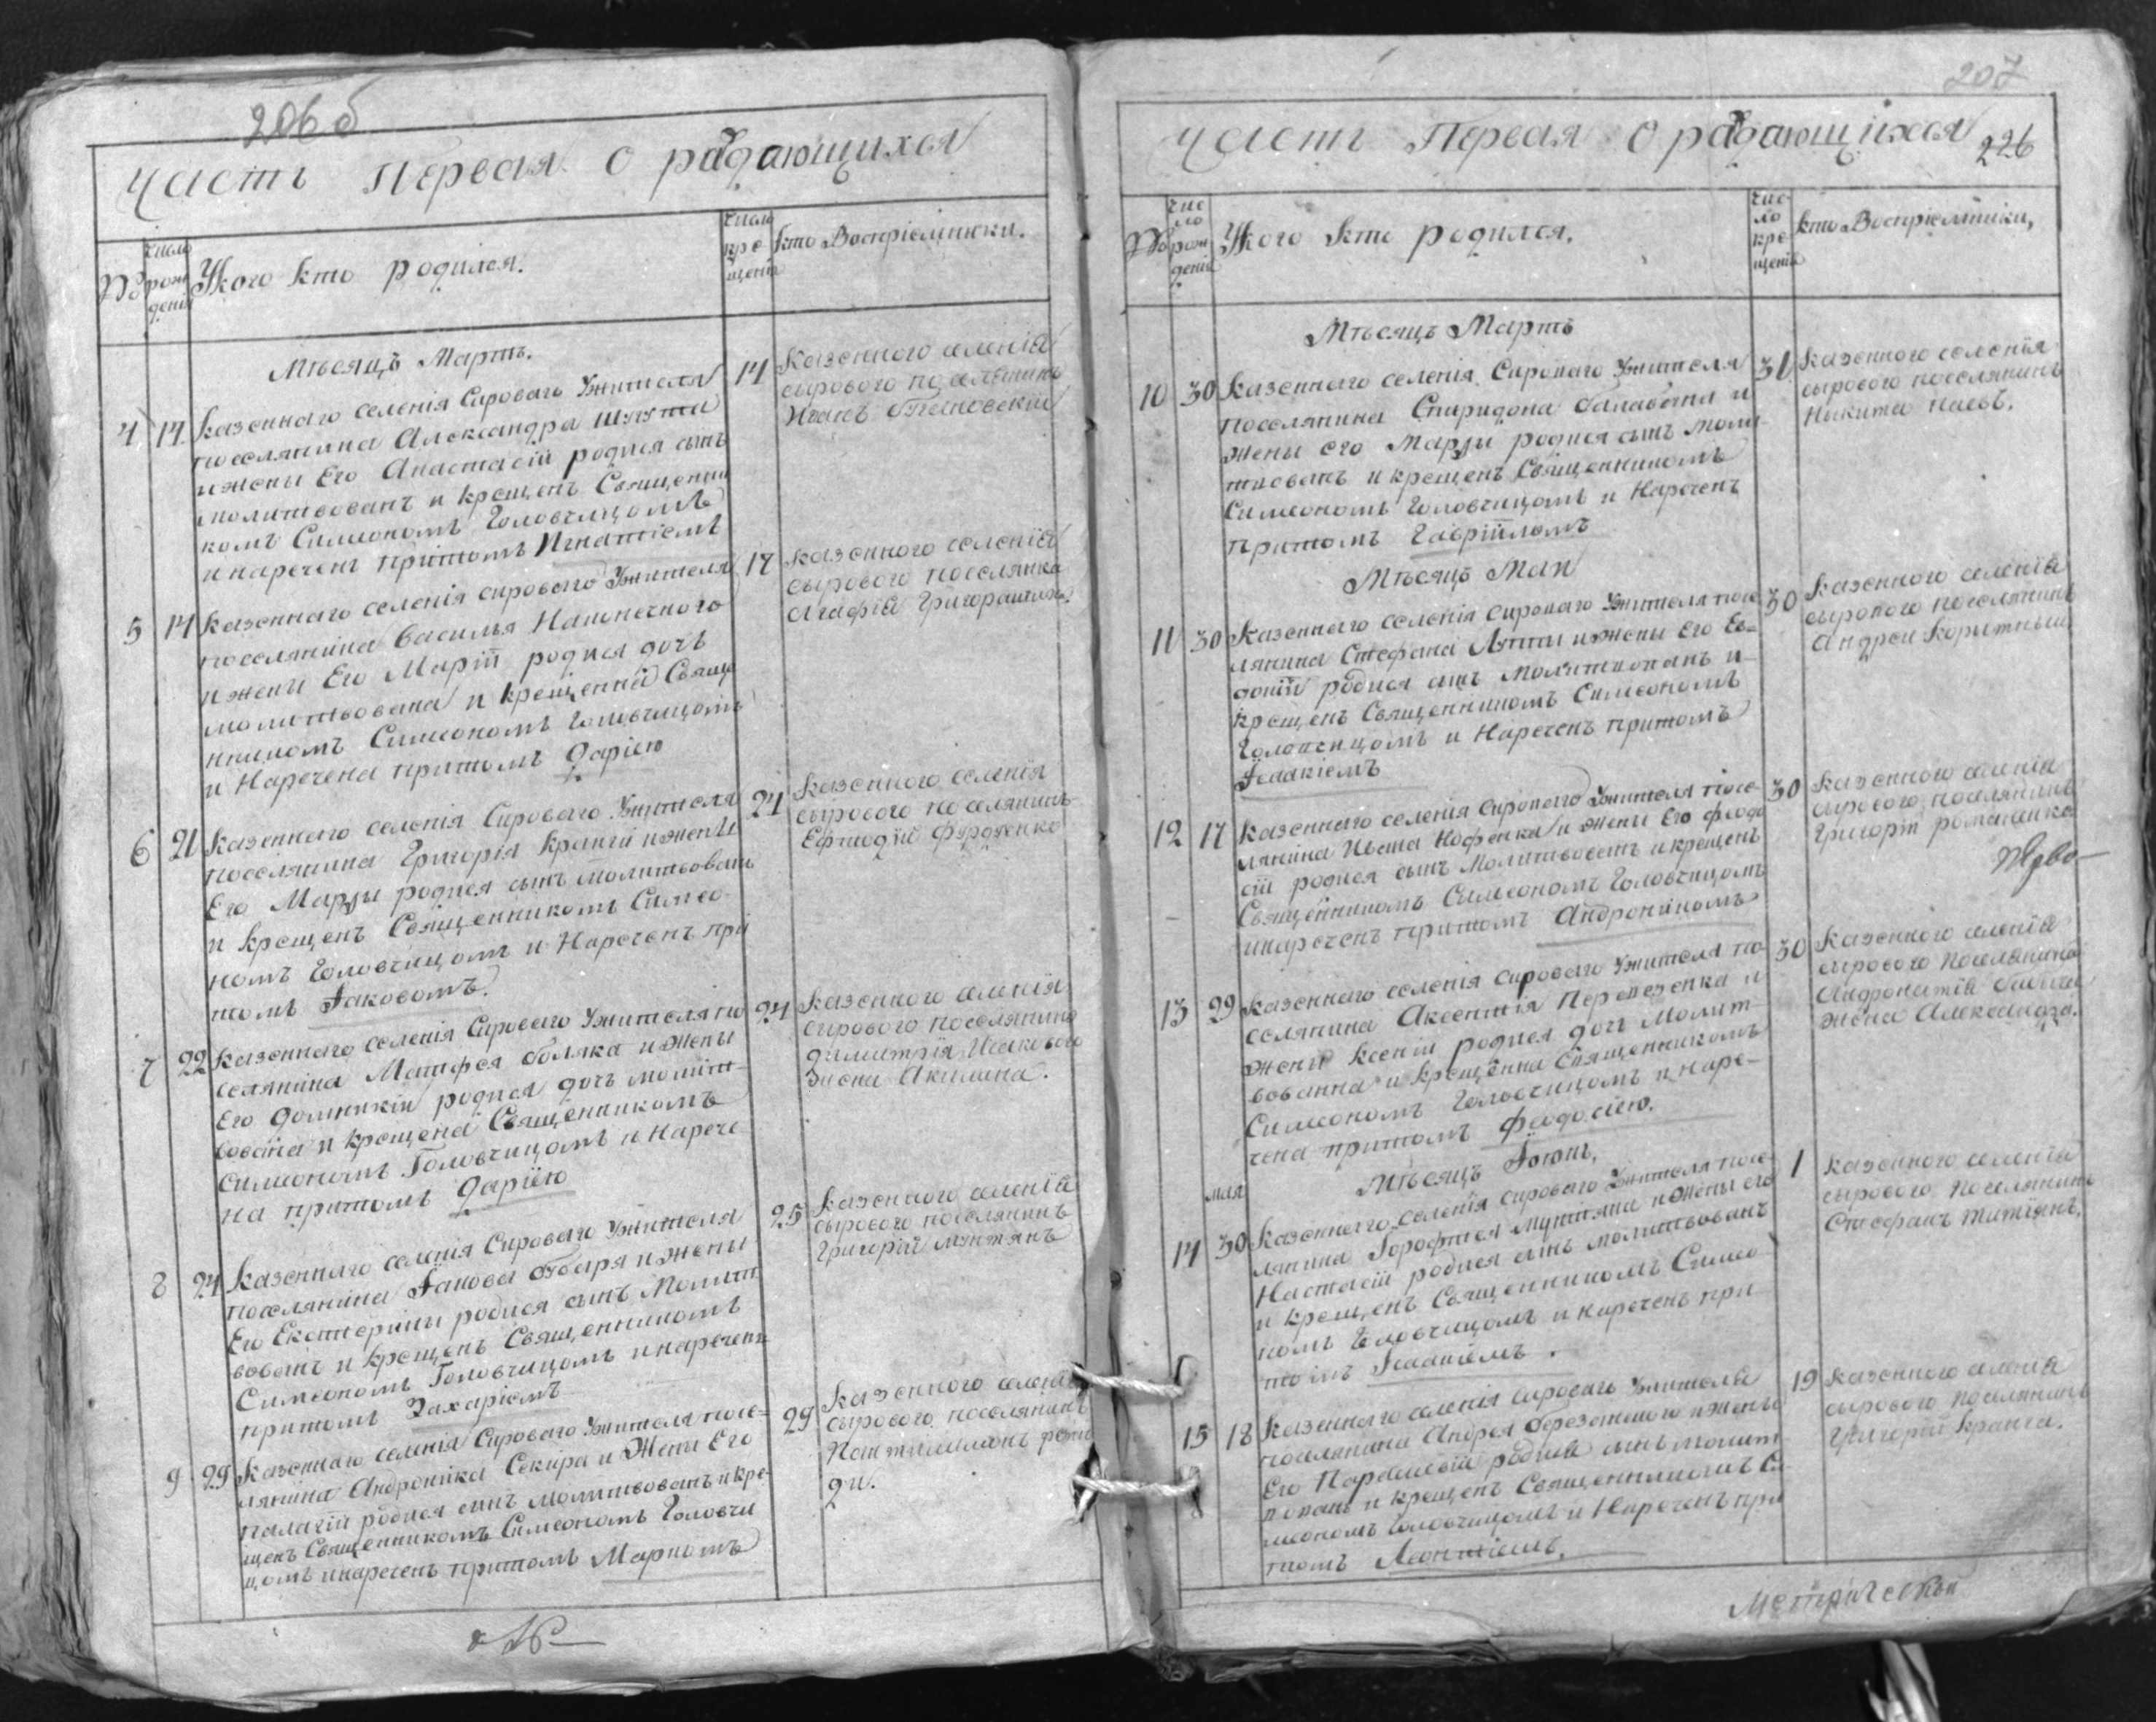 206 б
Часть Первая о раждающихся
№
число рождения
У кого кто родился.
число крещения
кто Воспріемники.
Мѣсяцъ Мартъ.
4 14 14
Казеннаго селенія Сироваго Ужителя
поселянина Александра
и жены Его Анастасіи родися сынъ
молитвованъ и крещенъ Священни
комъ Симеономъ Головчицомъ
и нареченъ притомъ Игнатіемъ
Казенного селенія
сырового поселянинъ
Иванъ
5 14 17
Казеннаго селенія сироваго Ужителя
поселянина Василья Наконечного
и жены Его Маріи родися дочъ
молитвована и крещенна Свяще
нникомъ Симеономъ Головчицомъ
и Наречена притомъ Даріею
Казенного селенія
сырового поселянка
Агафія
6 21 24
Казеннаго селенія Сироваго Ужителя
поселянина Григорія Кранги и жены
Его Марѳы родися сынъ молитвованъ
и крещенъ Священникомъ Симео-
номъ Головчицомъ и Нареченъ при
томъ Іаковомъ.
Казенного селенія
сырового поселянинъ
7 22 24
Казеннаго селенія Сироваго Ужителя по
селянина Матфея и жены
Его Домникіи родися дочъ молит-
вована и крещена Священникомъ
Симеономъ Головчицомъ и Нарече
на притомъ Даріею
Казенного селенія
сирового поселянина
димитрія
жена Акилина.
8 24 25
Казеннаго селенія Сироваго Ужителя
поселянина Іакова и жены
Его Екатерины родися сынъ Молит
вованъ и крещенъ Священникомъ
Симеономъ Головчицомъ и нареченъ
притомъ Захаріемъ
Казенного селенія
сырового поселянинъ
Григорій Мунтянъ
9 29 29
Казеннаго селенія Сироваго Ужителя посе=
лянина Андроника Секира и Жены Его
Палагіи родися сынъ молитвованъ и кре-
щенъ Священникомъ Симеономъ Головчи
цомъ и нареченъ притомъ Маркомъ
Казенного селенія
сырового поселянинъ
207
Часть Первая о раждающихся
226
№
число рождения
У кого кто родился.
число крещения
кто Воспріемники,
Мѣсяцъ Мартъ
10 30 31
Казеннаго селенія Сироваго Ужителя
поселянина Спиридона балабана и
жены его Марѳы родися сынъ моли
твованъ и крещенъ Священникомъ
Симеономъ Головчицомъ и Нареченъ
притомъ Гавріиломъ
Казенного селенія
сырового поселянинъ
Никита
Мѣсяцъ Маи
11 30 30
Казеннаго селенія Сироваго Ужителя посе
лянина Стефана и жены Его Ев=
докіи родися сынъ Молитвованъ и
крещенъ Священникомъ Симеономъ
Головчицомъ и Нареченъ притомъ
Ісаакіемъ
Казенного селенія
сырового поселянинъ
Андреи Коритный
12 17 30
Казеннаго селенія сироваго Ужителя посе-
лянина Ивана и жены Его феодо
сіи родися сынъ Молитвованъ и крещенъ
Священникомъ Симеономъ Головчицомъ
и нареченъ притомъ Андроникомъ
Казенного селенія
сырового поселянинъ
Григорій романенко
13 29 30
Казеннаго селенія сироваго Ужителя по
селянина Аксентія и
жены Ксеніи родися дочъ Молит-
вованна и крещенна Священникомъ
Симеономъ Головчицомъ и наре-
чена притомъ Феодосіею.
Казенного селенія
сырового поселянина
жена Александра.
Мѣсяцъ Іюнь.
мая
14 30 1
Казеннаго селенія сироваго Ужителя посе-
лянина Дорофтея Мунтяна и жены его
Настасіи родися сынъ молитвованъ
и крещенъ Священникомъ Симео-
номъ Головчицомъ и нареченъ при
томъ Ісаакіемъ.
Казенного селенія
сырового поселянинъ
Стефанъ
15 18 19
Казеннаго селенія сироваго Ужителя
поселянина Андрея и жены
Его Параскевіи родися сынъ молит
вованъ и крещенъ Священникомъ Си
меономъ Головчицомъ и Нареченъ при
томъ Леонтіемъ.
Казенного селенія
сырового поселянинъ
Григорій Кранга.